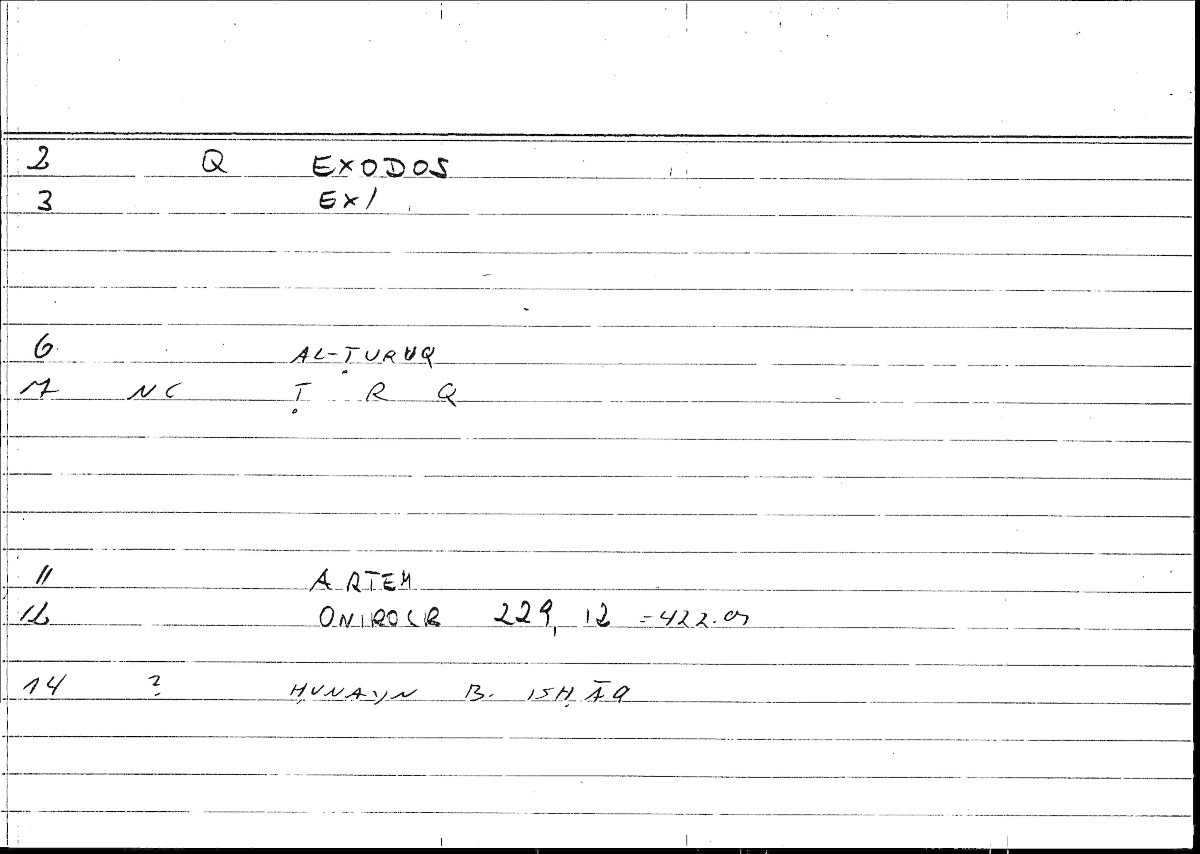 2 Q EXODOS
3 EX/
6 AL-ṬURUQ
7 NC Ṭ R Q
11 ARTEM
12 ONIROCR 229, 12 =422.
14 ? ḤUNAYN B. ISḤĀQ